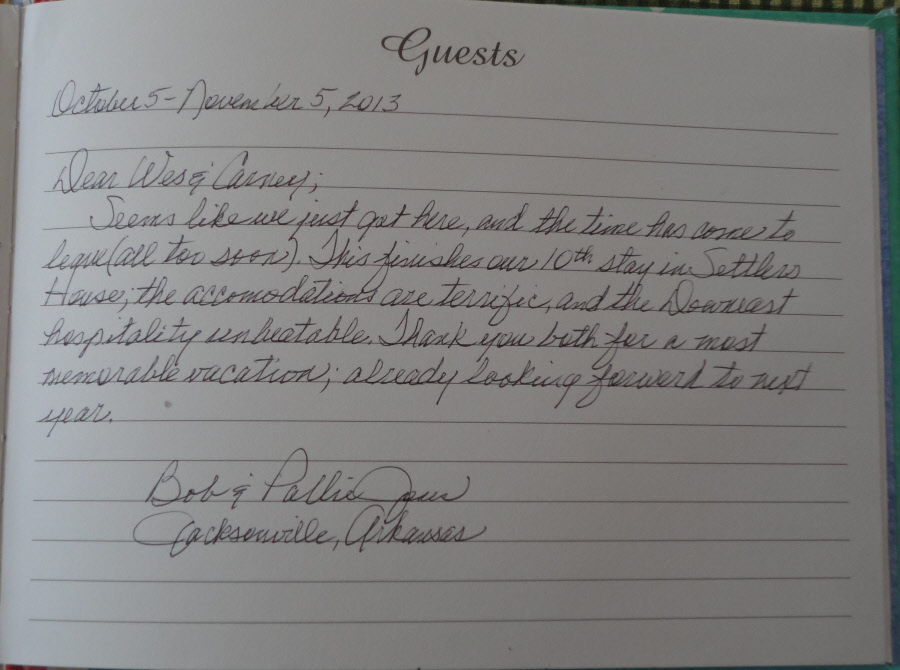 Guests
October 5 - November 5, 2013
Dear Wes & Carney;
Seems like we just got here, and the time has come to
leave (all too soon). This finishes our 10th stay in Settlers
House; the accomodations are terrific, and the Downeast
hospitality unbeatable. Thank you both for a most
memorable vacation; already looking forward to next
year.
Bob &
Jacksonville, Arkansas